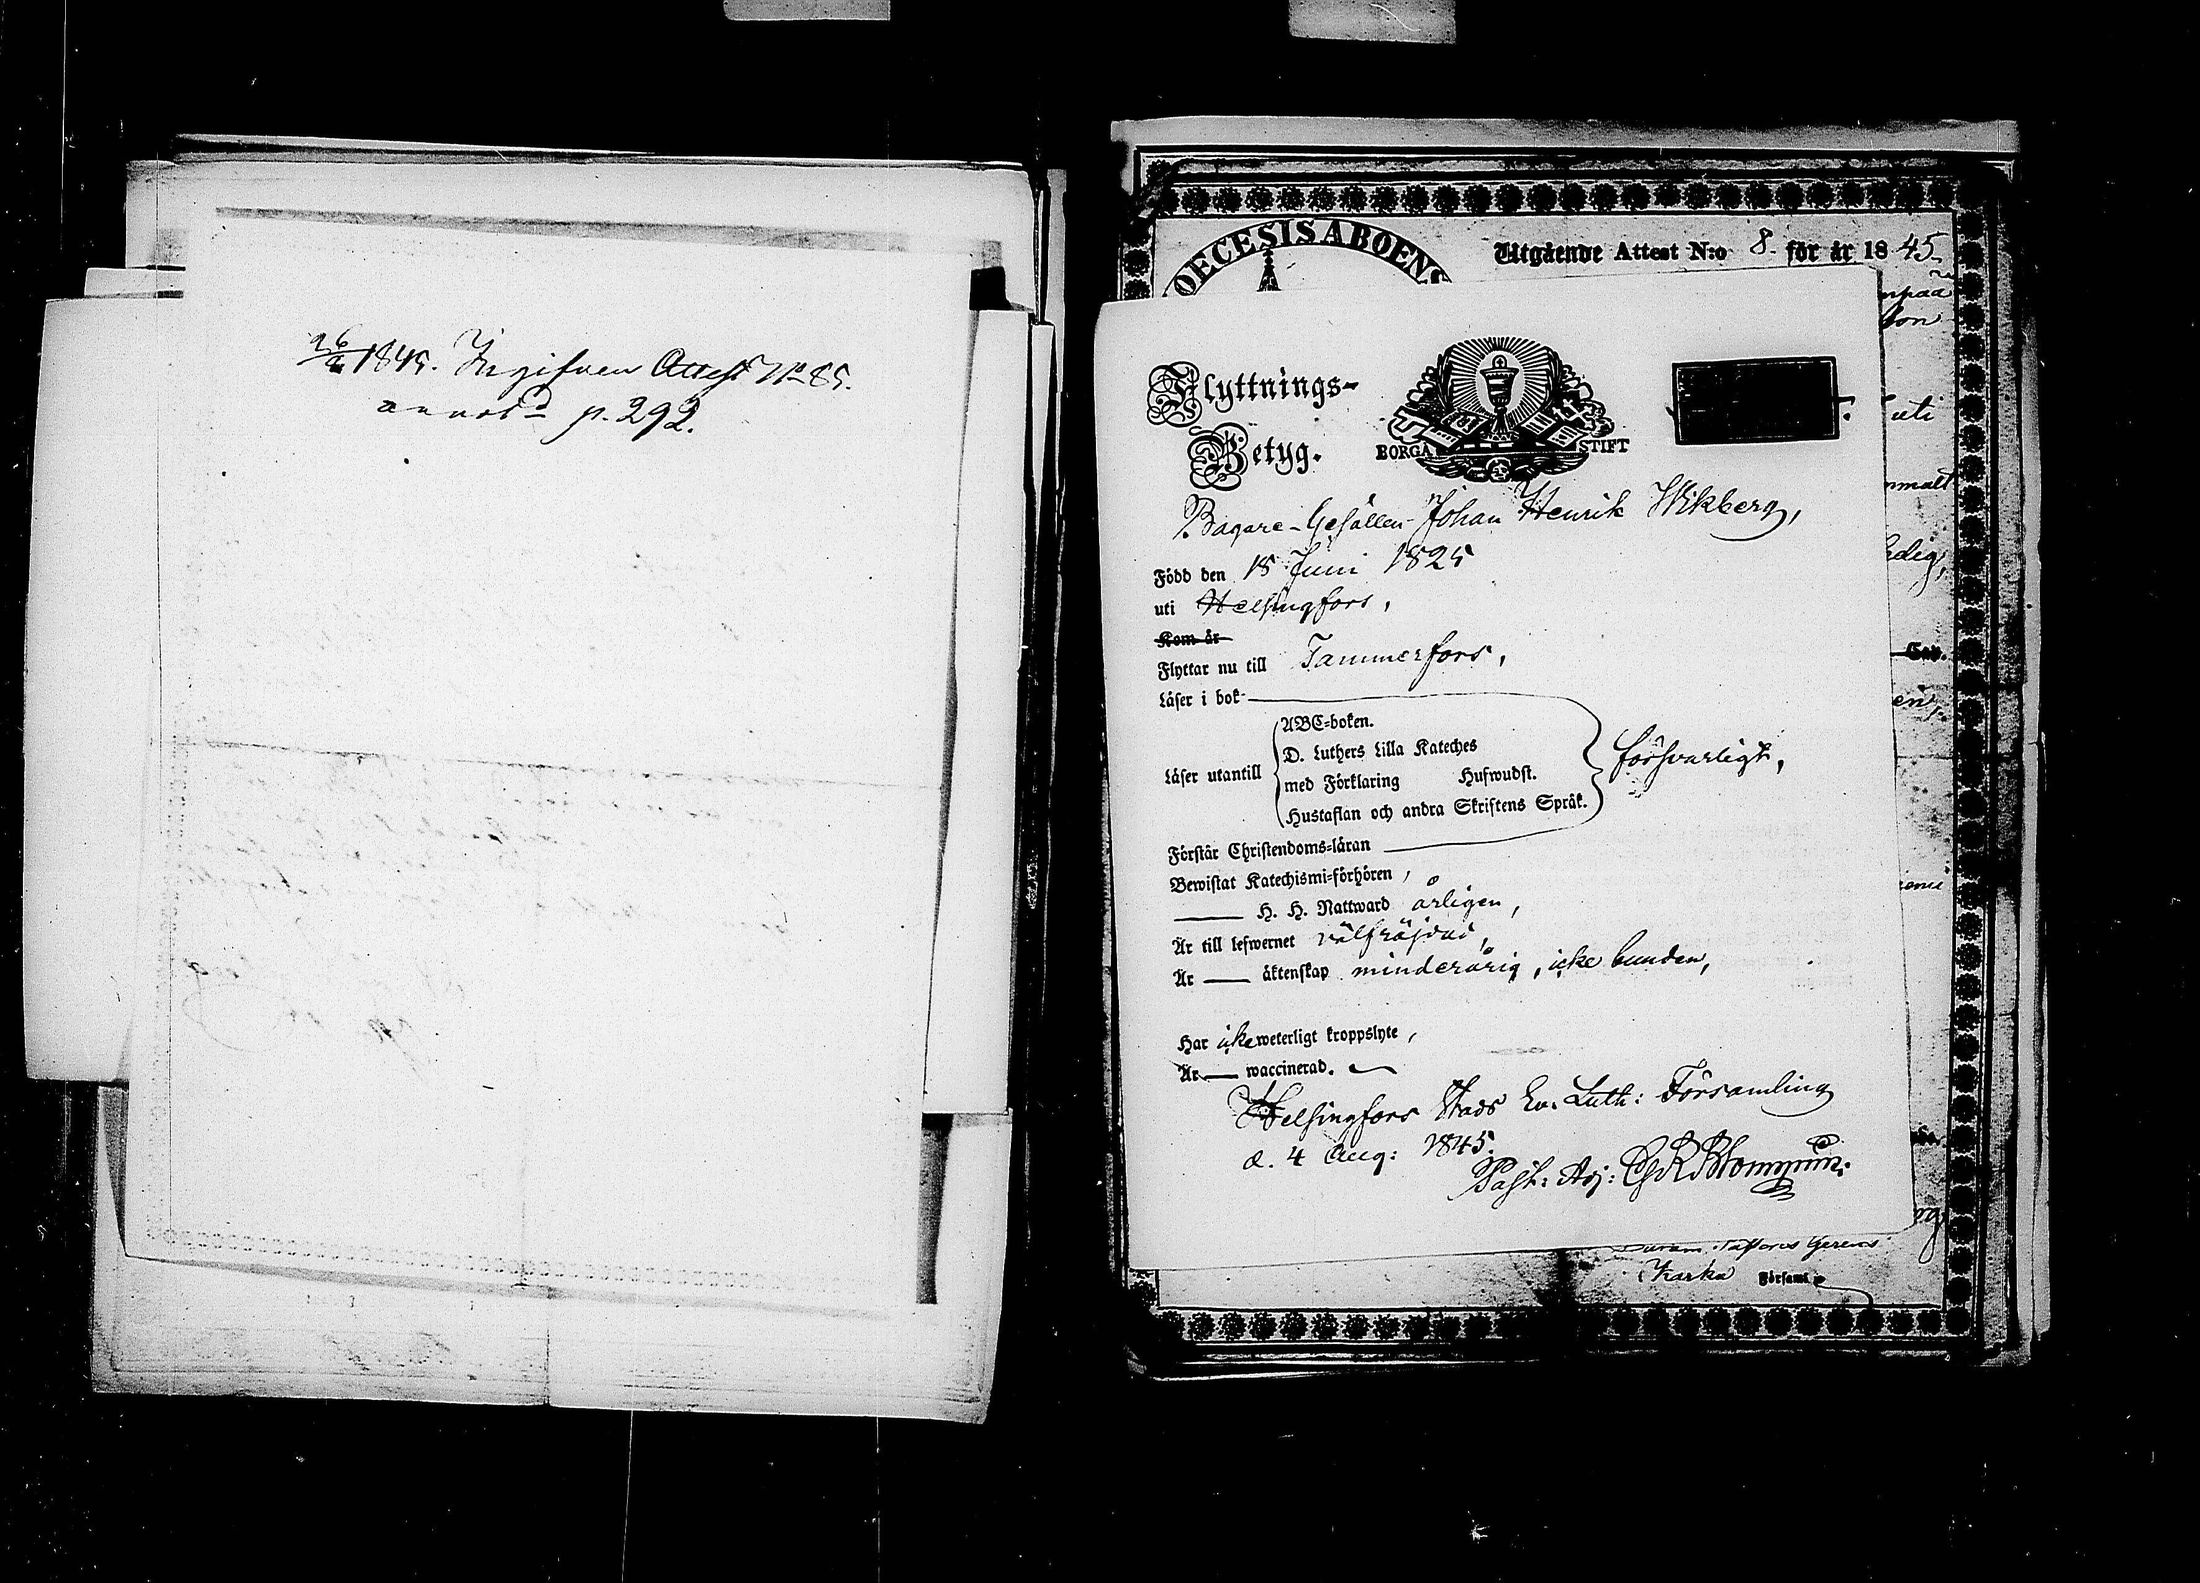 1845. Ingifven Attest No 85.
annot. p. 292.
DECESIS ABOENS
Utgående Attest N:o 8. för år 1845.
Flyttnings-
Betyg.
BORGÅ STIFT
uti
Bagare-Gesällen Johan Henrik Wikberg,
Född den 18 Juni 1825
uti Helsingfors,
Kom år
Flyttar nu till Tammerfors,
Läser i bok
ABC-boken.
D. Luthers Lilla Kateches
Läser utantill
med Förklaring Hufwudst.
Hustaflan och andra Skriftens Språk.
försvarligt,
Förstår Christendoms-läran
Bewistat Katechismi-förhören,
H. H. Nattward årligen,
Är till lefwernet välfräjdad,
Är äktenskap minderårig, icke bunden,
Har icke weterligt kroppslyte,
Är waccinerad.
Helsingfors Stads Ev. Luth: Församling
d. 4 Aug: 1845.
Past: Adj:
Karku Församl.